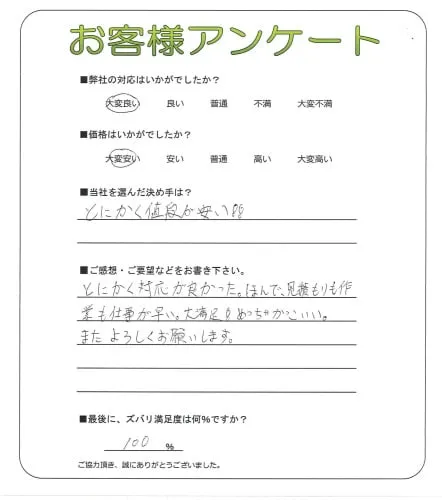 お客様アンケート
■弊社の対応はいかがでしたか?
大変良い 良い 普通 不満 大変不満
■価格はいかがでしたか?
大変安い 安い 普通 高い 大変高い
■当社を選んだ決め手は?
とにかく値段が安い!!
■ご感想・ご要望などをお書き下さい。
とにかく対応が良かった。ほんで、見積もりも作
業も仕事が早い。大満足!めっちゃかっこいい。
またよろしくお願いします。
■最後に、ズバリ満足度は何%ですか?
100 %
ご協力頂き、誠にありがとうございました。